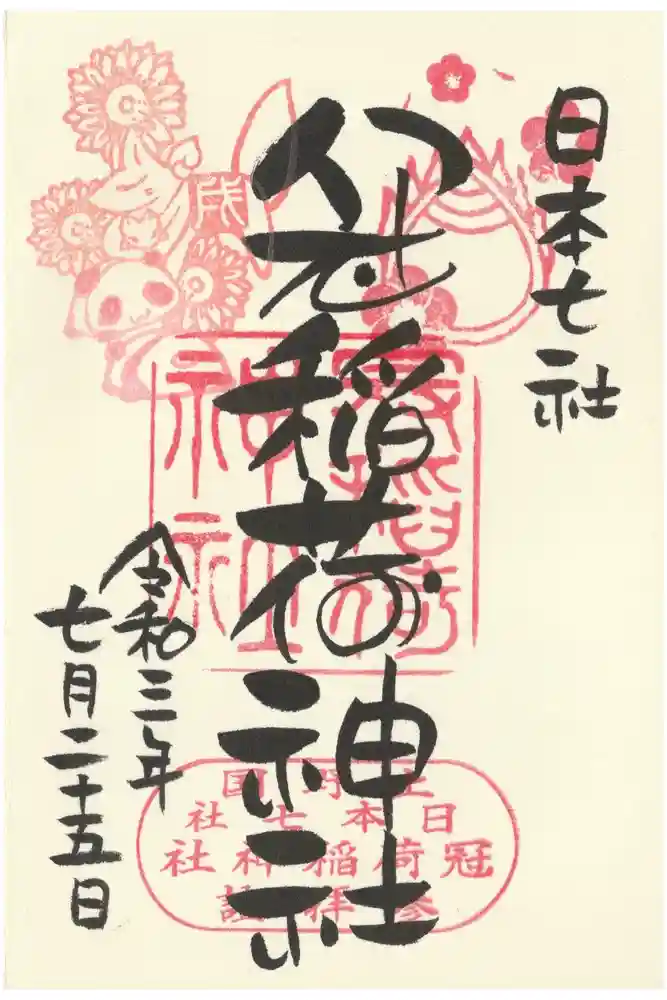 日本七社
冠稲荷神社
令和三年
七月二十五日
戌
冠稲荷
神社
上野国
日本七社
冠荷稲神社
参拝証